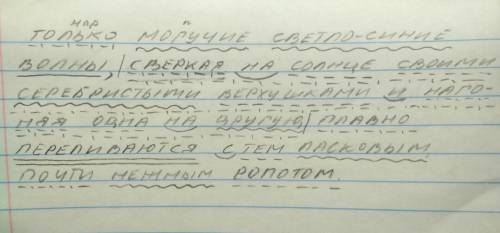 нар п
ТОЛЬКО МОГУЧИЕ СВЕТЛО-СИНИЕ
ВОЛНЫ,|СВЕРКАЯ НА СОЛНЦЕ СВОИМИ
СЕРЕБРИСТЫМИ ВЕРХУШКАМИ И НАГО-
НЯЯ ОДНА НА ДРУГУЮ,|ПЛАВНО
ПЕРЕЛИВАЮТСЯ С ТЕМ ЛАСКОВЫМ,
ПОЧТИ НЕЖНЫМ РОПОТОМ.